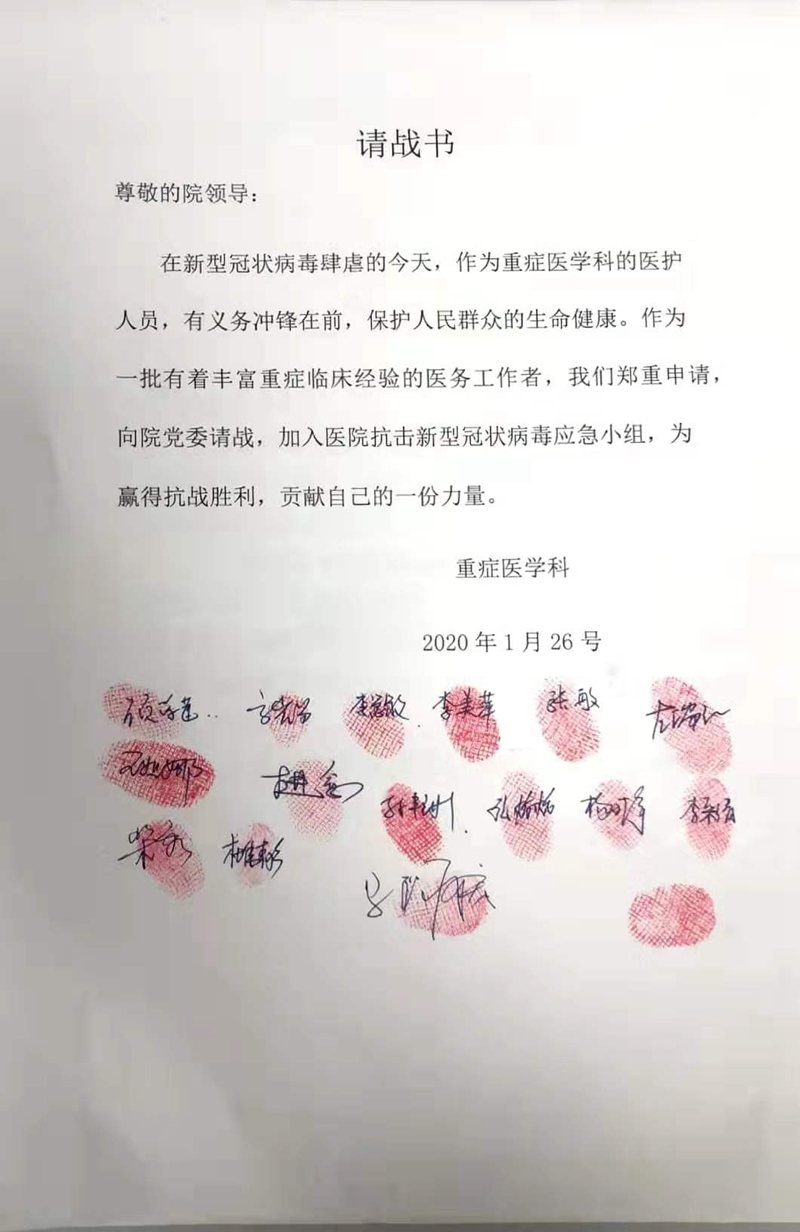 请战书
尊敬的院领导：
在新型冠状病毒肆虐的今天，作为重症医学科的医护
人员，有义务冲锋在前，保护人民群众的生命健康。作为
一批有着丰富重症临床经验的医务工作者，我们郑重申请，
向院党委请战，加入医院抗击新型冠状病毒应急小组，为
赢得抗战胜利，贡献自己的一份力量。
重症医学科
2020 年 1 月 26 号
李美萍 张敏